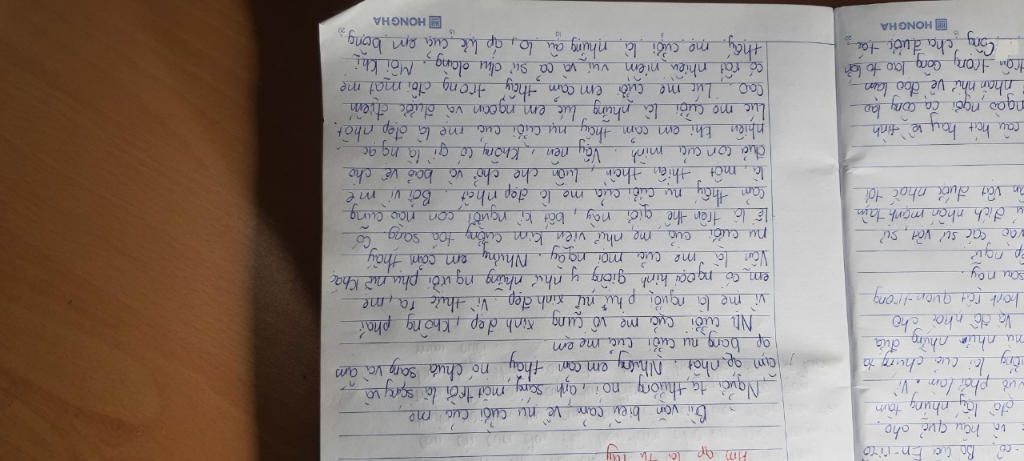 Ấm áp là từ láy
Bài văn biểu cảm về nụ cười của mẹ
Người ta thường nói, ánh sáng mặt trời là sáng và
ấm áp nhất. Nhưng em cảm thấy nó chưa sáng và ấm
áp bằng nụ cười của mẹ em
Nụ cười của mẹ vô cùng xinh đẹp, không phải
vì mẹ là người phụ nữ xinh đẹp. Vì thực ra, mẹ
em có ngoại hình giống y như những người phụ nữ khác
Vẫn là mẹ của mọi ngày. Nhưng em cảm thấy
nụ cười của mẹ như viên kim cương toả sáng. Có
lẽ là trên thế giới này, bất kì người con nào cũng
cảm thấy nụ cười của mẹ là đẹp nhất. Bởi vì mẹ
là một thiên thần, luôn che chở và bảo vệ cho
đứa con của mình. Vậy nên, không có gì là ngạc
nhiên khi em cảm thấy nụ cười của mẹ là đẹp nhất
Lúc mẹ cười là những lúc em ngoan và được điểm
cao. Lúc mẹ cười em cảm thấy trong đôi mắt mẹ
có rất nhiều niềm vui và cả sự dịu dàng. Mỗi khi
thấy mẹ cười là những âu lo, áp lực của em bỗng
HONG HA
cờ. Bố của En-ri-cô
và hậu quả cho
đó lấy những tấm
Vì
lấy của chúng ta
như những đứa
Và để nhà cho
hành rất quan trọng
sau này.
vào các sự vật, sự
đích nhấn mạnh làm
sự vật được nhắc tới
câu hát hay về tình
ngào, ngợi ca công lao
nhân nhủ về đạo làm
trân trọng công lao to lớn
Công cha được tác
HONG HA